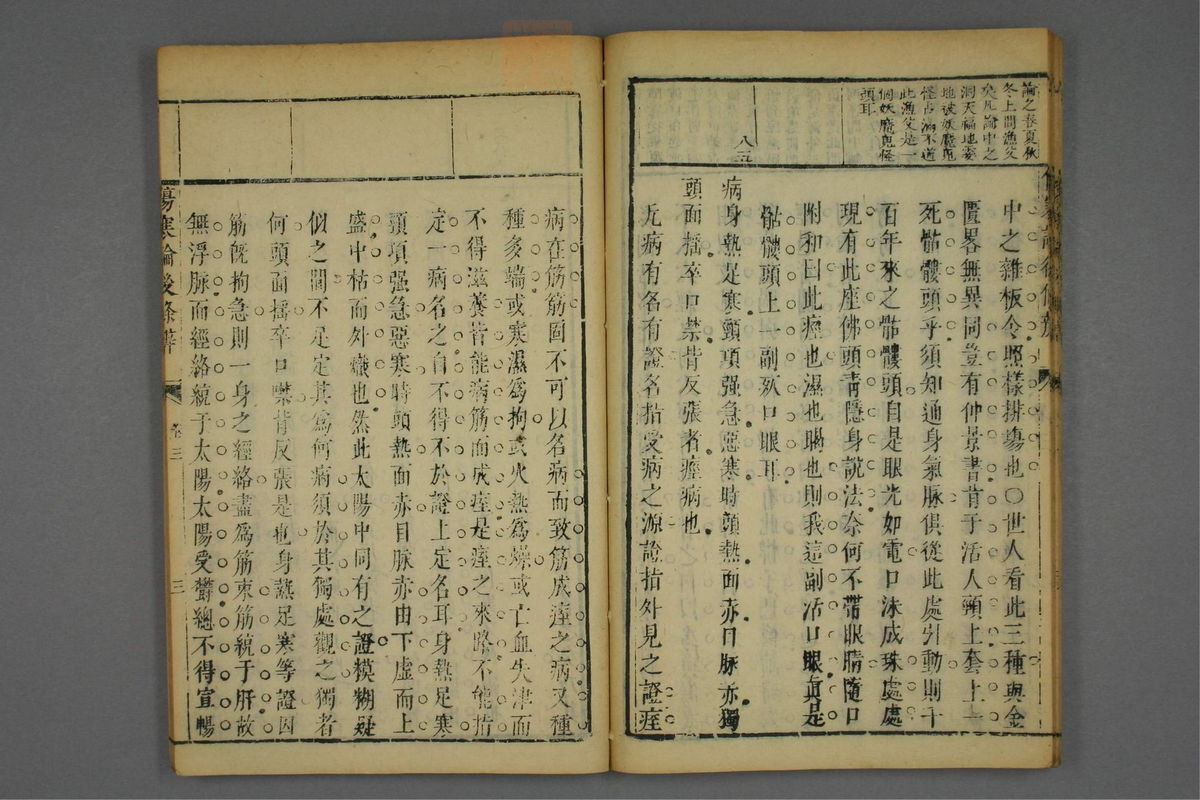 論之春夏秋
冬上問漁父
矣凡論中之
洞天福地委
地被妖魔鬼
怪占滿不道
此漁父是一
個妖魔鬼怪
頭耳
八五
中之雜板令照樣排塲也○世人看此三種與金
匱畧無異同豈有仲景書肯于活人頸上套上一
死骷髏頭乎須知通身氣脉俱從此處引動則千
百年來之骷髏頭自是眼光如電口沫成珠處處
現有此座佛頭靑隱身說法奈何不帶眼睛隨口
附和曰此痙也濕也暍也則我這副活口眼眞是
骷髏頭上一副死口眼耳
病身熱足寒頸項强急惡寒時頭熱面赤目脉赤獨
頭面搖卒口禁背反張者痙病也
凡病有名有證名指受病之源證指外見之證痙
病在筋筋固不可以名病而致筋成痙之病又種
種多端或寒濕爲拘或火熱爲燥或亡血失津而
不得滋養皆能病筋而成痙是痙之來路不能指
定一病名之自不得不於證上定名耳身熱足寒
頸項强急惡寒時頭熱面赤目脉赤由下虛而上
盛中枯而外熾也然此太陽中同有之證模糊疑
似之間不足定其爲何病須於其獨處觀之獨者
何頭面搖卒口噤背反張是也身熱足寒等證因
筋旣拘急則一身之經絡盡爲筋束筋統于肝故
無浮脉而經絡統于太陽太陽受鬱總不得宣暢
傷寒論後條辨
卷三
三